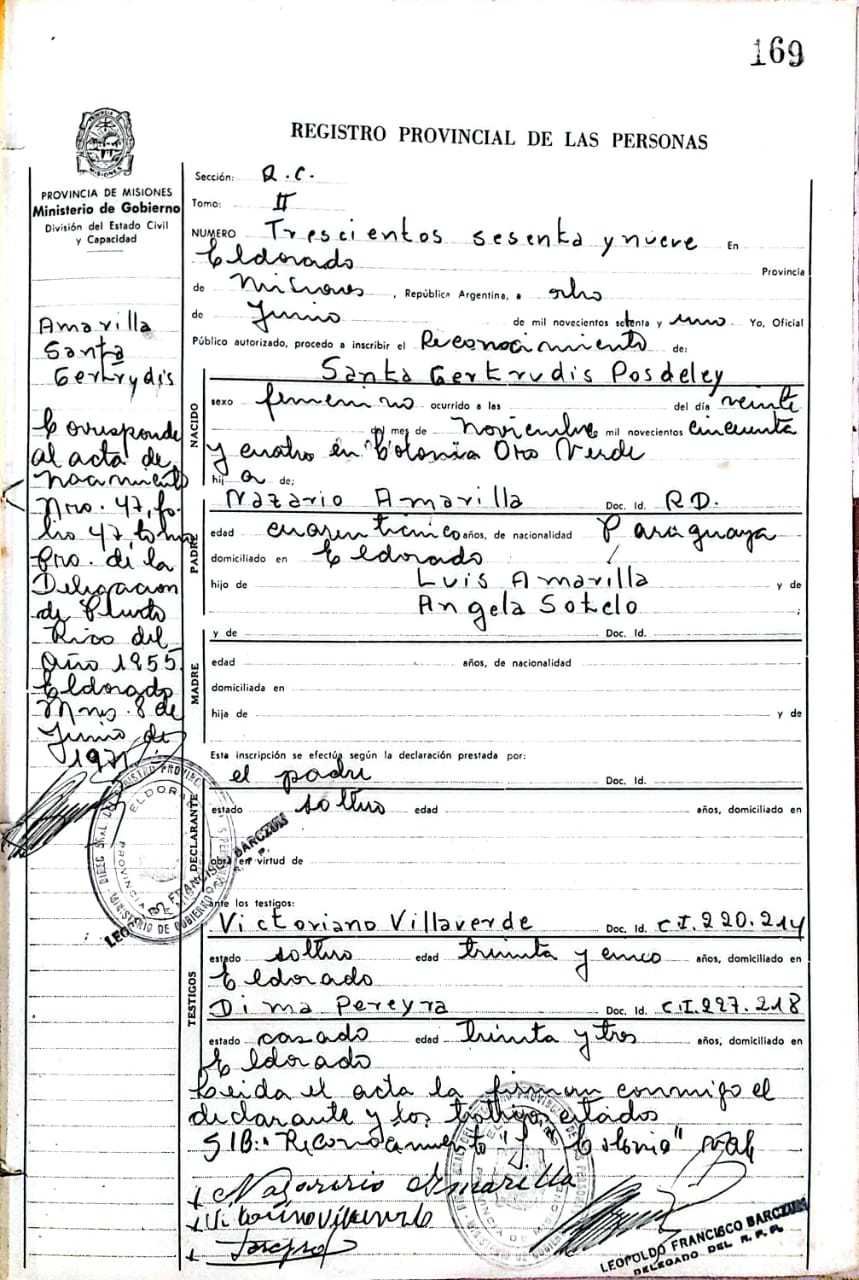 169
REGISTRO PROVINCIAL DE LAS PERSONAS
PROVINCIA DE MISIONES
Ministerio de Gobierno
División del Estado Civil
y Capacidad
Amarilla
Santa
Gertrydis
Corresponde
al acta de
nacimiento
Nro. 47, fo-
lio 47, tomo
Pro. de la
Delegacion
de Puerto
Rico del
Año 1955.
Eldorado
Mnes. 8 de
Junio de
1971.
Sección: R.C.
Tomo: II
NUMERO Trescientos sesenta y nueve En
Eldorado Provincia
de Misiones, República Argentina, a ocho
de Junio de mil novecientos setenta y uno Yo, Oficial
Público autorizado, procedo a inscribir el Reconocimiento de:
NACIDO
Santa Gertrudis Posdeley
sexo femenino ocurrido a las del día veinte
del mes de Noviembre mil novecientos cincuenta
y cuatro en Colonia Oro Verde
hij a de;
PADRE
Nazario Amarilla Doc. Id. R.D.
edad cuarenticinco años, de nacionalidad Paraguaya
domiciliado en Eldorado
hijo de Luis Amarilla y de
Angela Sotelo ;
MADRE
y de Doc. Id.
edad años, de nacionalidad
domiciliada en
hija de y de
DECLARANTE
Esta inscripción se efectúa según la declaración prestada por:
el padre Doc. Id.
estado soltero edad años, domiciliado en
obra en virtud de
TESTIGOS
ante los testigos:
Victoriano Villaverde Doc. Id. C.I. 220.214
estado soltero edad treinta y cinco años, domiciliado en
Eldorado
Dima Pereyra Doc. Id. C.I. 227.218
estado casado edad treinta y tres años, domiciliado en
Eldorado
Leida el acta la firman conmigo el
declarante y los testigos citados
S/B: Reconocimiento "y Colonia" vale
Nazario Amarilla
LEOPOLDO FRANCISCO BARCZUK
DELEGADO DEL R.P.P.